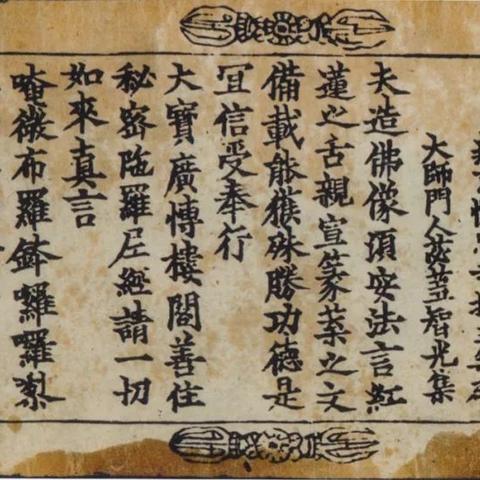 大師門人苾蒭智光集
夫造佛像須安法言紅
蓮之舌親宣篆葉之文
備載能獲殊勝功德是
冝信受奉行
大寶廣愽樓閣善住
秘密陁羅尼經請一切
如來真言
唵薇布羅鉢囉囉